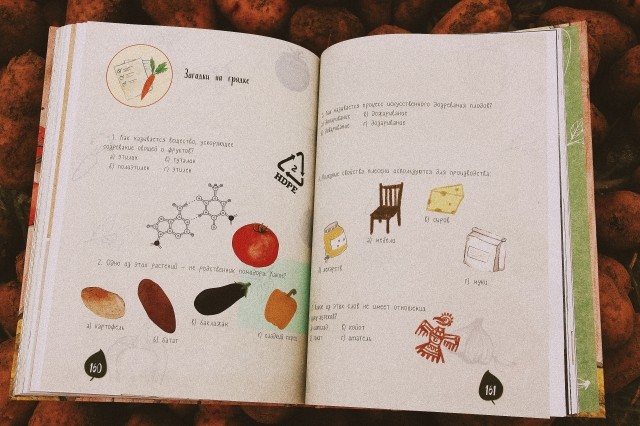 Загадки на грядке
1. Как называется вещество, ускоряющее
созревание овощей и фруктов?
а) этилон б) бутилен
в) полиэтилен г) этилен
2
HDPE
2. Одно из этих растений – не родственник помидора. Какое?
а) картофель
б) батат
в) баклажан
г) сладкий перец
160
3. Как называется процесс искусственного дозревания плодов?
в) Дозаривание
г) Эдаривание
свойства кассии используются для производства:
а) мебели
б) сыров
в) лекарств
г) муки
из этих слов не имеет отношения
б) койот
г) шпатель
161